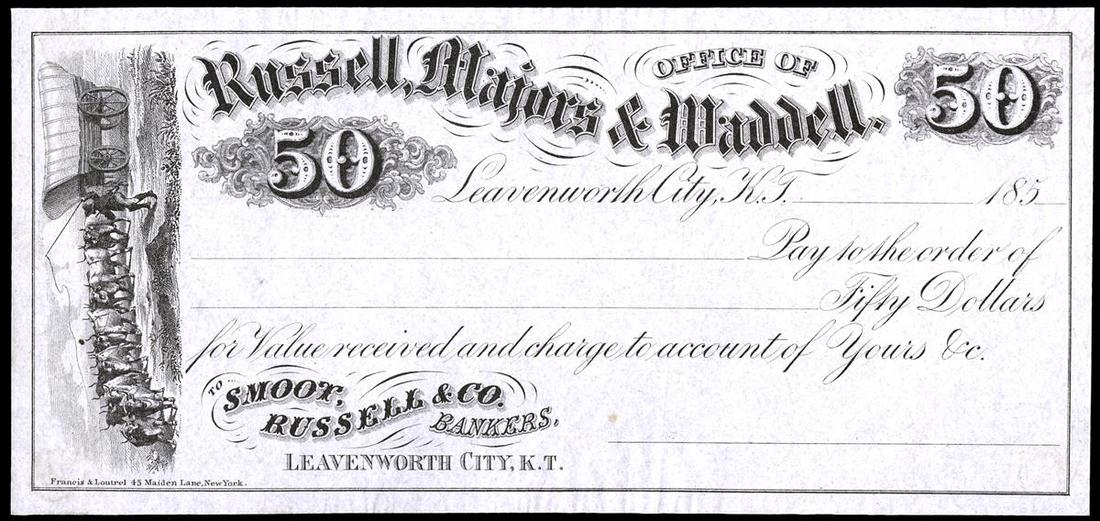 OFFICE OF
Russell, Majors & Waddell.
50
50
Leavenworth City, K.T. 185
Pay to the order of
Fifty Dollars
for Value received and charge to account of Yours &c.
TO SMOOT,
RUSSELL & CO.
BANKERS,
LEAVENWORTH CITY, K.T.
Francis & Loutrel 45 Maiden Lane, New York.